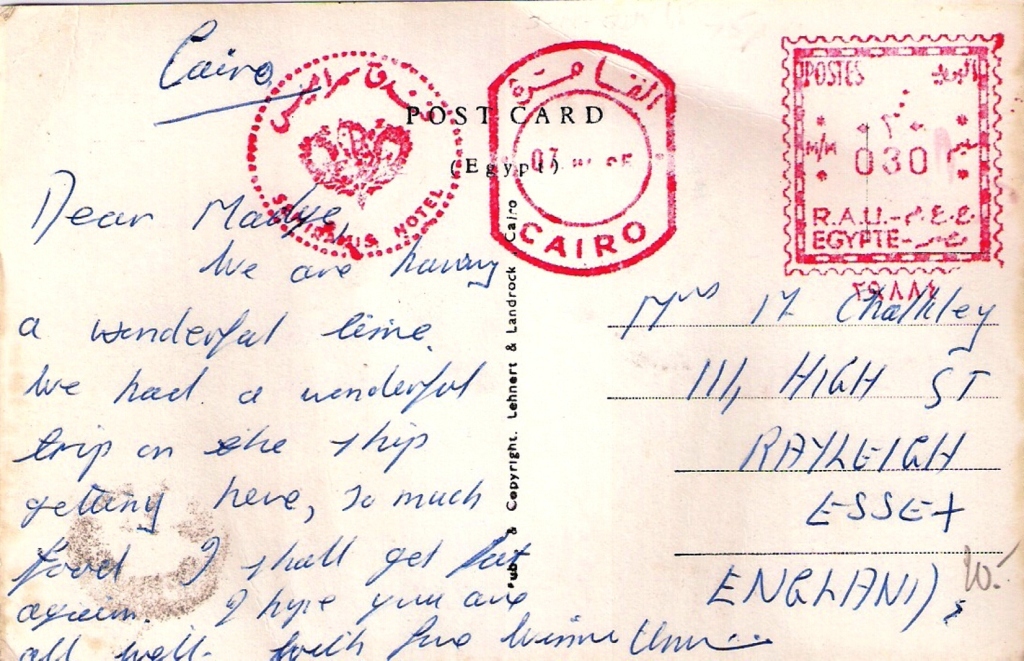 Cairo
فندق سميراميس
SEMIRAMIS HOTEL
POST CARD
(Egypt)
القاهرة
07
CAIRO
POSTES
البريد
m/m ٠٣٠
030
R.A.U. - ج.ع.م
EGYPTE - مصر
٢٩٨٨٤
Dear Madge,
We are having
a wonderful time.
We had a wonderful
trip on the ship
getting here, so much
food I shall get fat
again. I hope you are
all well. With
Pub & Copyright. Lehnert & Landrock Cairo
Mrs M Chalkley
111, HIGH ST
RAYLEIGH
ESSEX
ENGLAND
10.-